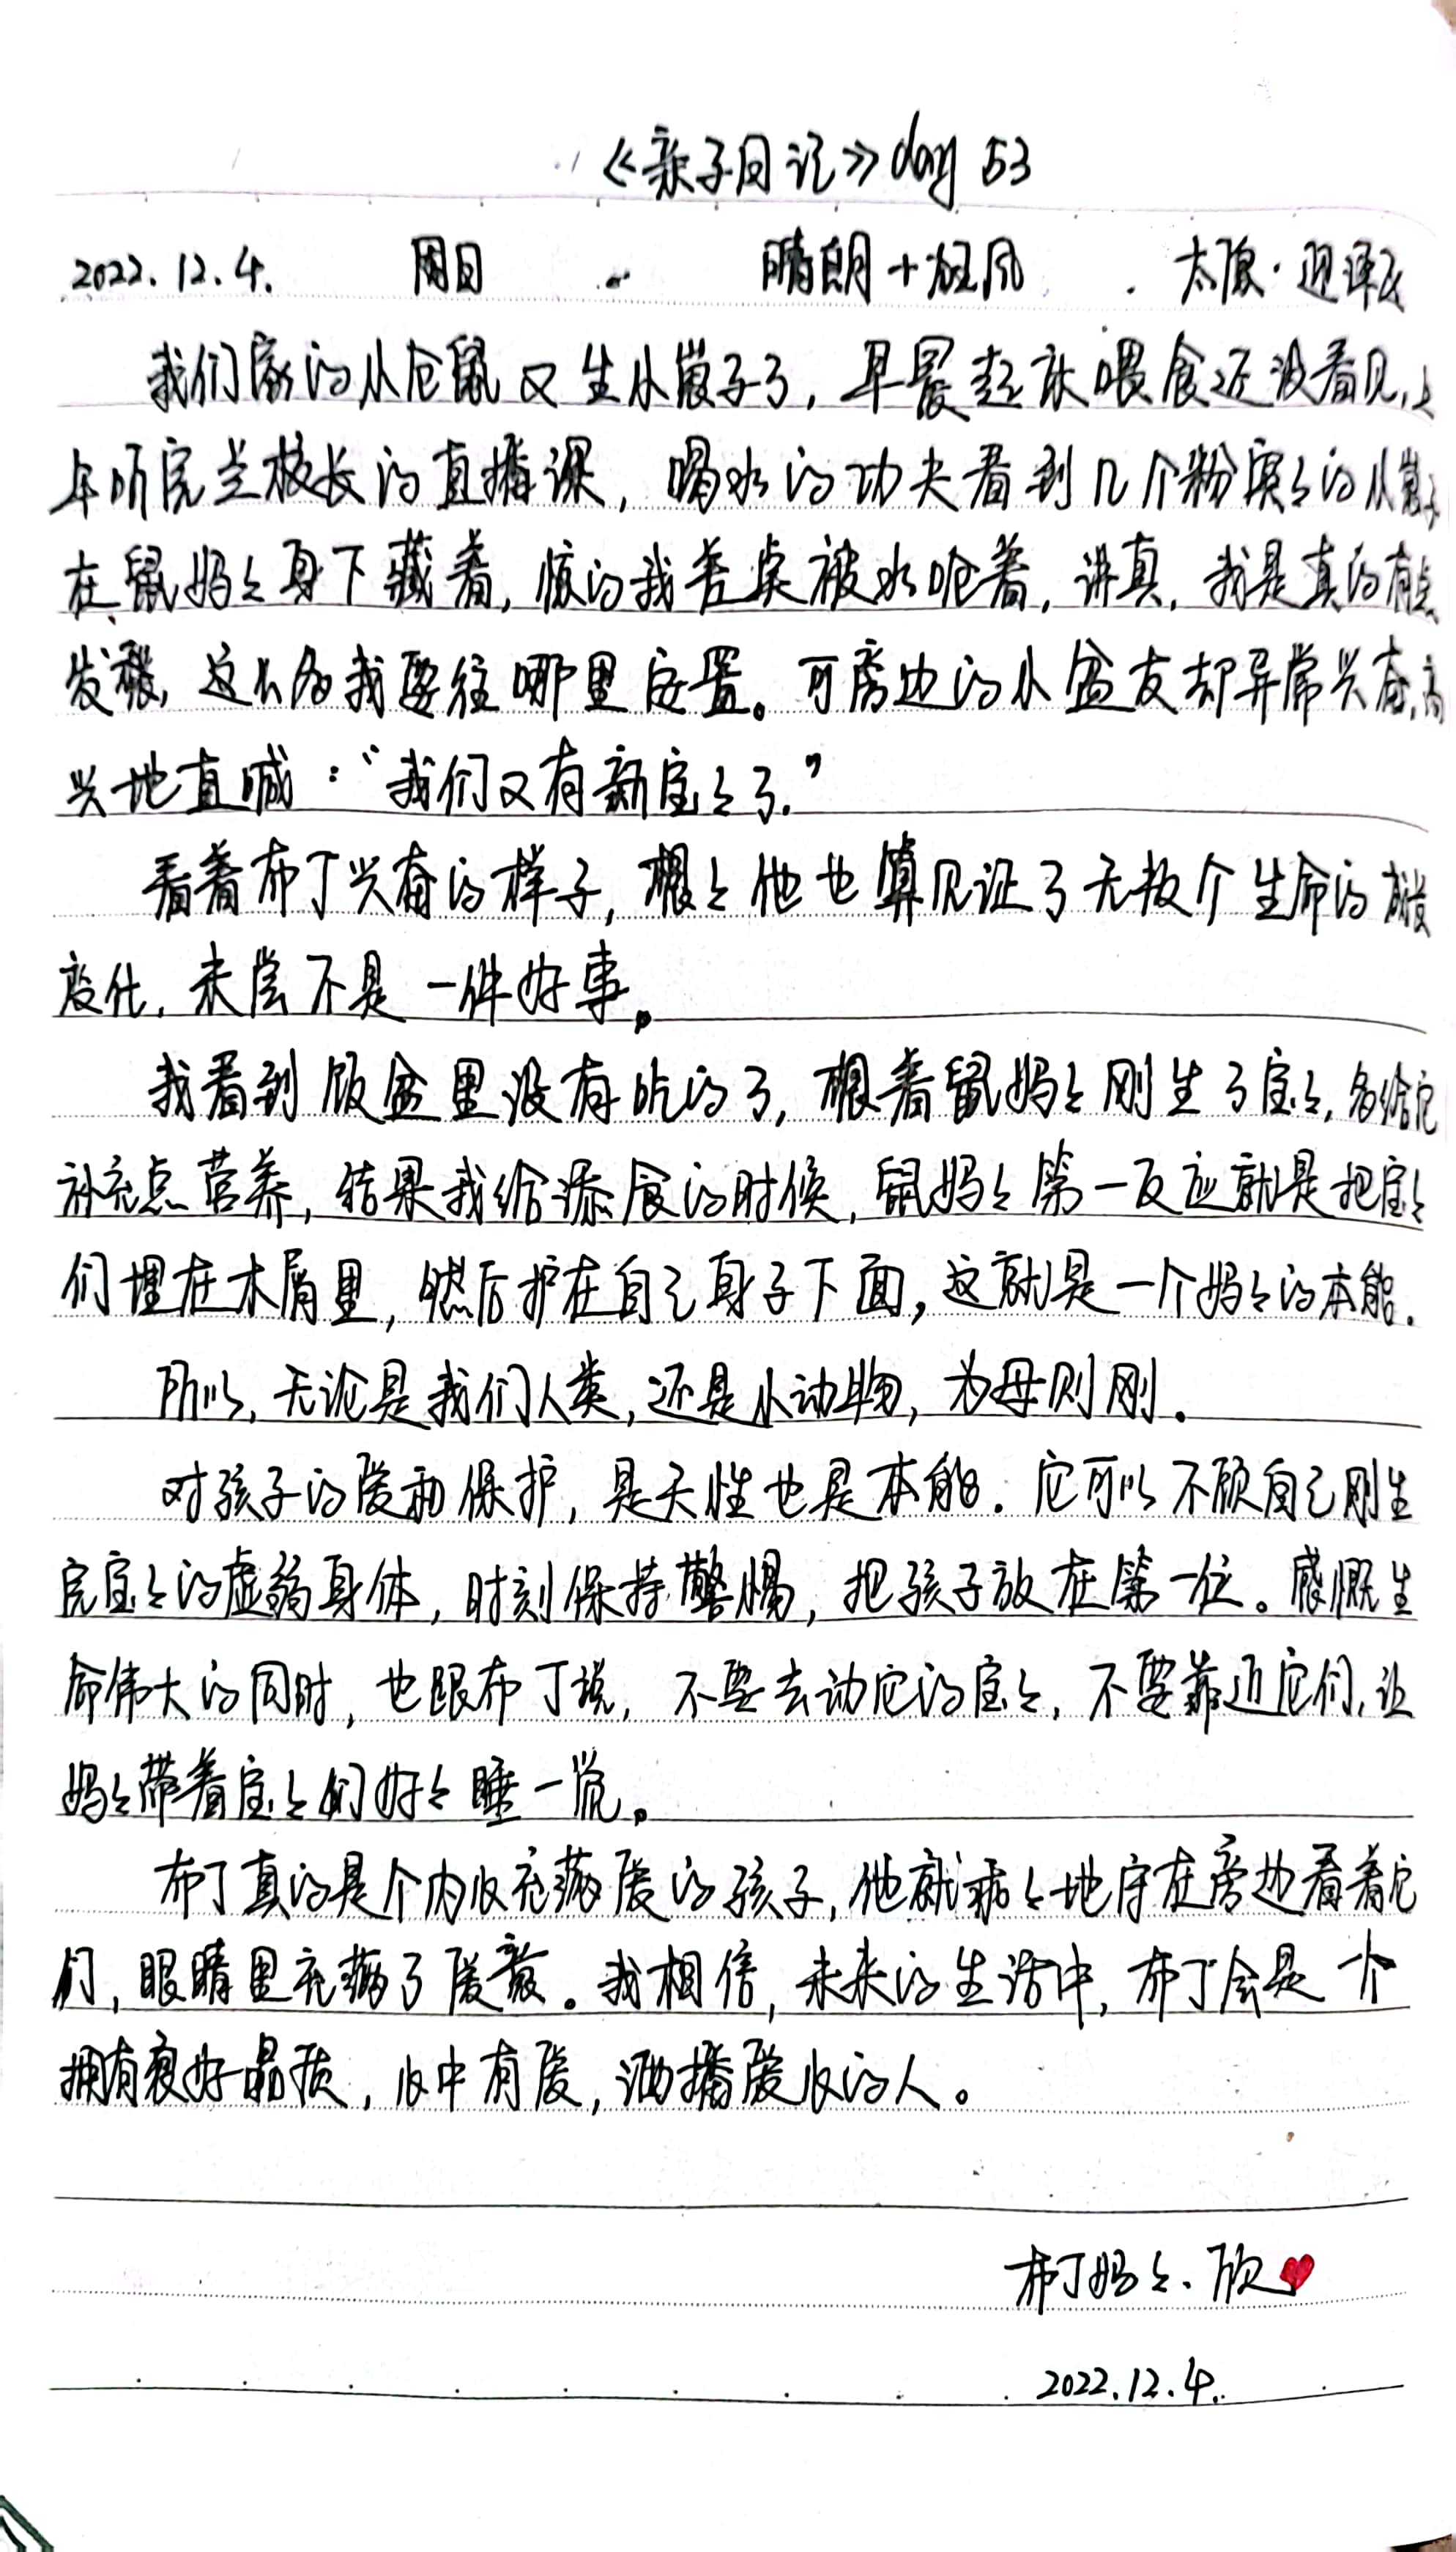 《亲子日记》day 53
2022.12.4. 周日 晴朗+狂风 太原·迎泽区
我们家的小仓鼠又生小崽子了,早晨起来喂食还没看见,上
午听完兰校长的直播课,喝水的功夫看到几个粉嫩々的小崽子
在鼠妈々身下藏着,惊的我差点被水呛着,讲真,我是真的有点
发愁,这么多我要往哪里安置。可旁边的小盆友却异常兴奋,高
兴地直喊:“我们又有新宝々了.”
看着布丁兴奋的样子,想々他也算见证了无数个生命的
变化,未尝不是一件好事。
我看到饭盆里没有吃的了,想着鼠妈々刚生了宝々,多给它
补充点营养,结果我给添食的时候,鼠妈々第一反应就是把宝々
们埋在木屑里,然后护在自己身子下面,这就是一个妈々的本能.
所以,无论是我们人类,还是小动物,为母则刚.
对孩子的爱和保护,是天性也是本能.它可以不顾自己刚生
完宝々的虚弱身体,时刻保持警惕,把孩子放在第一位。感慨生
命伟大的同时,也跟布丁说,不要去动它的宝々,不要靠近它们,让
妈々带着宝々们好々睡一觉。
布丁真的是个内心充满爱的孩子,他就乖々地守在旁边看着它
们,眼睛里充满了爱意。我相信,未来的生活中,布丁会是一个
拥有良好品质,心中有爱,洒播爱心的人。
布丁妈々.欣
2022.12.4.